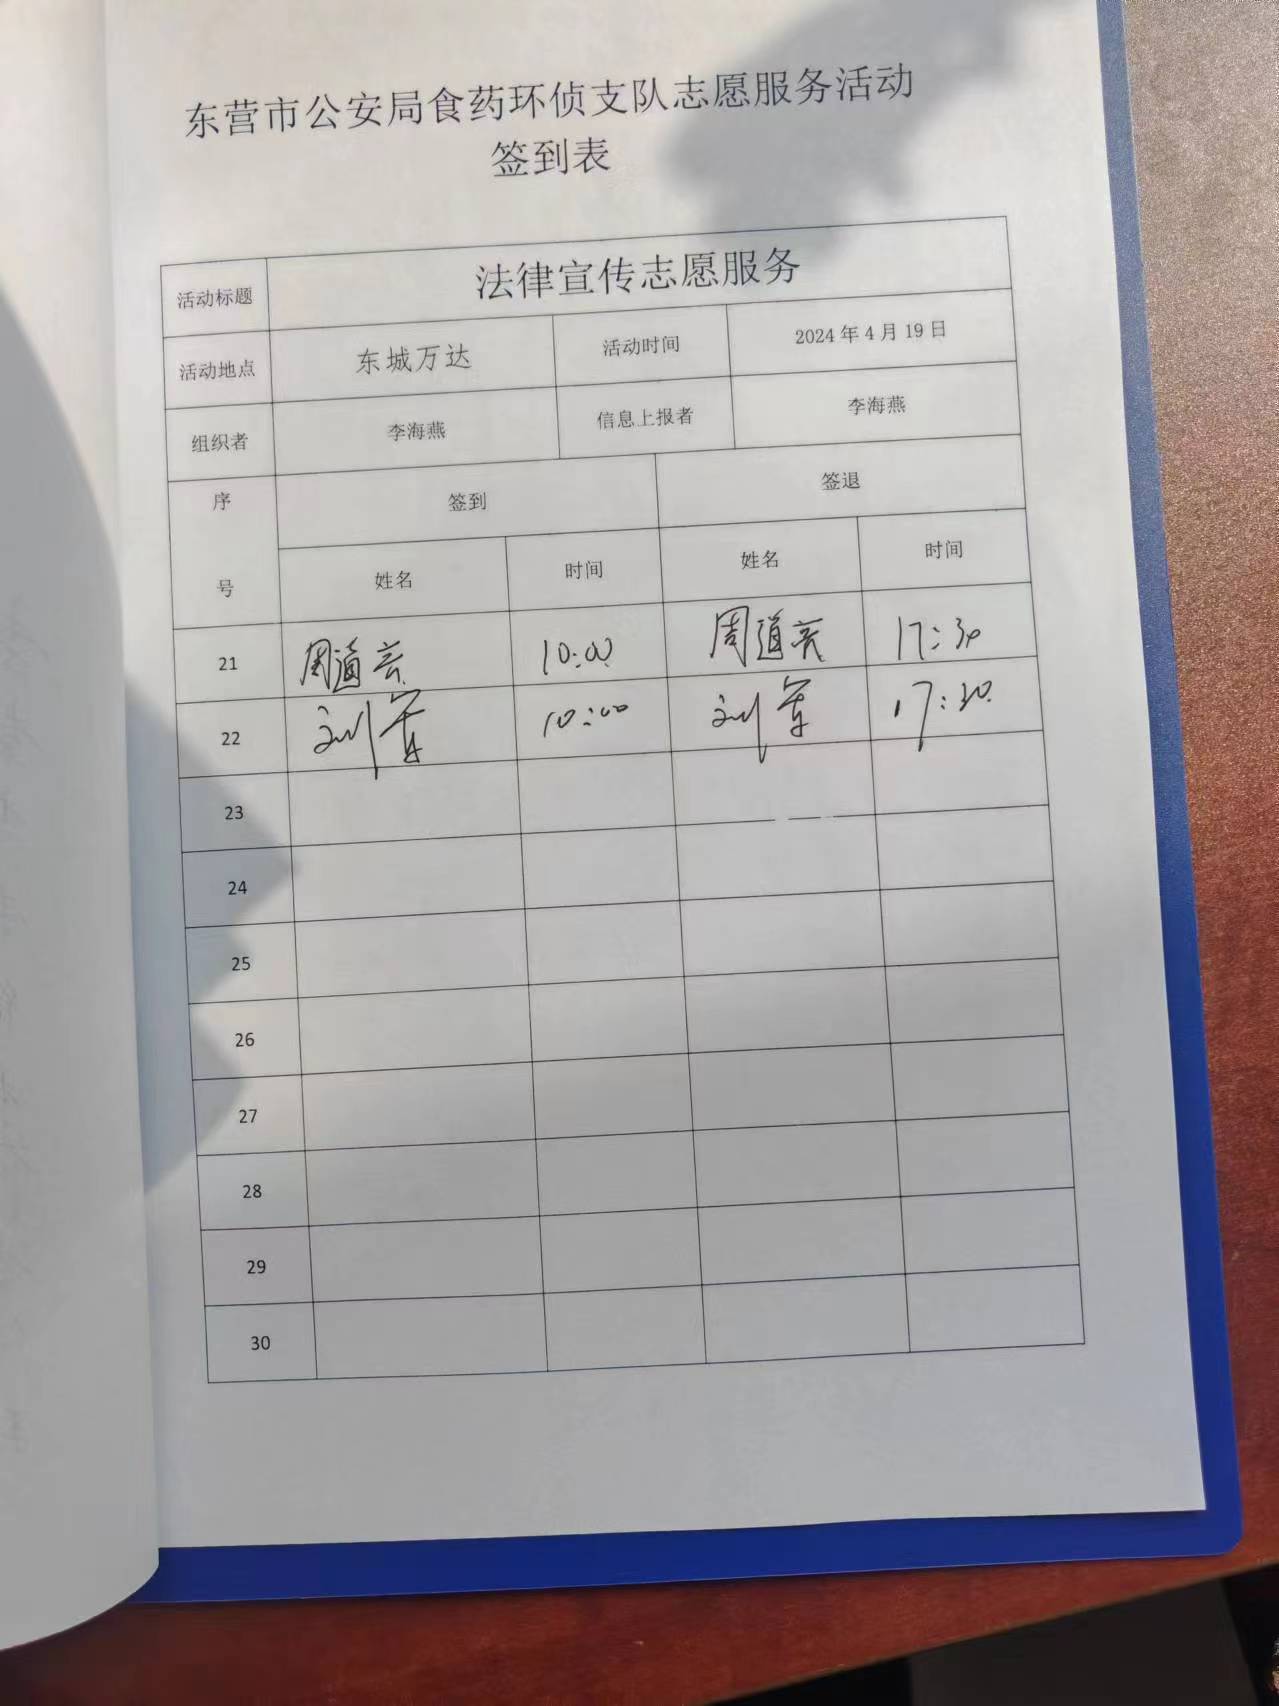 东营市公安局食药环侦支队志愿服务活动
签到表
活动标题 法律宣传志愿服务
活动地点 东城万达 活动时间 2024年4月19日
组织者 李海燕 信息上报者 李海燕
序号 签到 签退
姓名 时间 姓名 时间
21 周道亮 10:00 周道亮 17:30
22 刘军 10:00 刘军 17:30
23
24
25
26
27
28
29
30